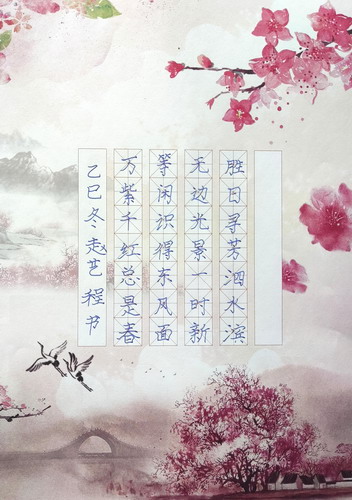 胜日寻芳泗水滨
无边光景一时新
等闲识得东风面
万紫千红总是春
乙巳冬赵艺程书